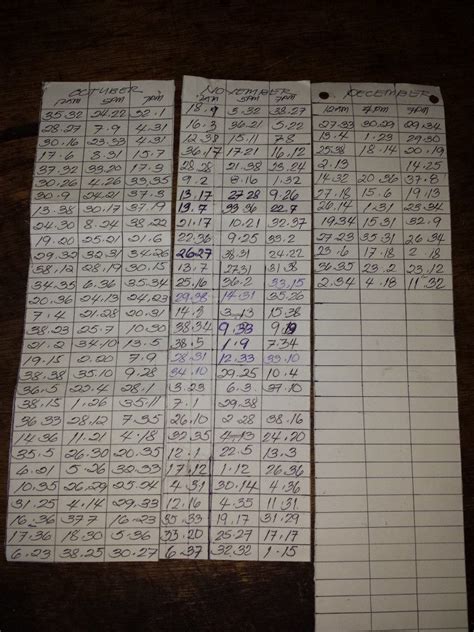 OCTUBER
5PM
35.32 24.22 32.1
28.27 7.9 4.31
30.16 23.33 4.31
17.6 3.31 15.7
37.32 33.20 17.2
30.26 4.26 33.35
30.9 24.21 37.3
13.38 30.17 37.19
24.30 8.24 38.22
19.20 25.21 21.6
29.32 32.31 34.26
28.19 30.15
34.35 6.36 35.34
20.36 24.13 24.23
7.4 21.28 20.31
38.23 25.7 10.30
21.2 34.10 13.5
19.15 7.9
38.38 35.10 9.28
36.5 22.4 28.1
38.15 1.26 35.11
36.33 28.12 7.35
14.36 11.21 4.18
35.5 26.30 20.35
6.21 5.26 32.33
10.35 26.29 25.24
31.25 4.14 29.33
16.36 37.7 16.23
17.36 18.30 5.36
6.23 38.25 30.27
NOVEMBER
5PM 7PM
18.9 5.32 38.27
16.3 36.21 5.22
12.38 15.11 7.8
36.17 17.21 16.12
28.28 21.38 23.24
9.2 8.16 1.32
13.17 27.28 9.26
13.7 33.36 22.7
21.17 10.21 32.37
22.36 9.25 33.2
26.27 38.31 24.22
13.7 27.31 31.38
25.16 36.2 33.15
29.38 14.31 35.26
14.3 3.13 15.38
38.34 9.33
38.5 1.9 7.34
28.31 12.33 33.10
34.10 29.25 10.4
3.23 6.3 37.10
7.1 29.38
26.10 2.28 38.16
32.35 4.13 24.20
12.1 22.5 13.3
17.12 1.12 26.36
4.31 30.14 4.36
12.16 4.35 11.31
35.33 19.17 31.29
33.20 25.27 17.17
6.37 32.32 1.15
DECEMBER
27.33 30.29 29.34
13.4 1.23 29.30
25.38 18.14 20.19
2.13 14.25
14.32 20.36 37.8
27.18 15.6 19.13
26.14 1.31 23.34
19.34 15.31 32.9
27.23 35.31 26.34
23.6 17.18 2.18
36.35 23.2 23.12
2.34 4.18 11.32